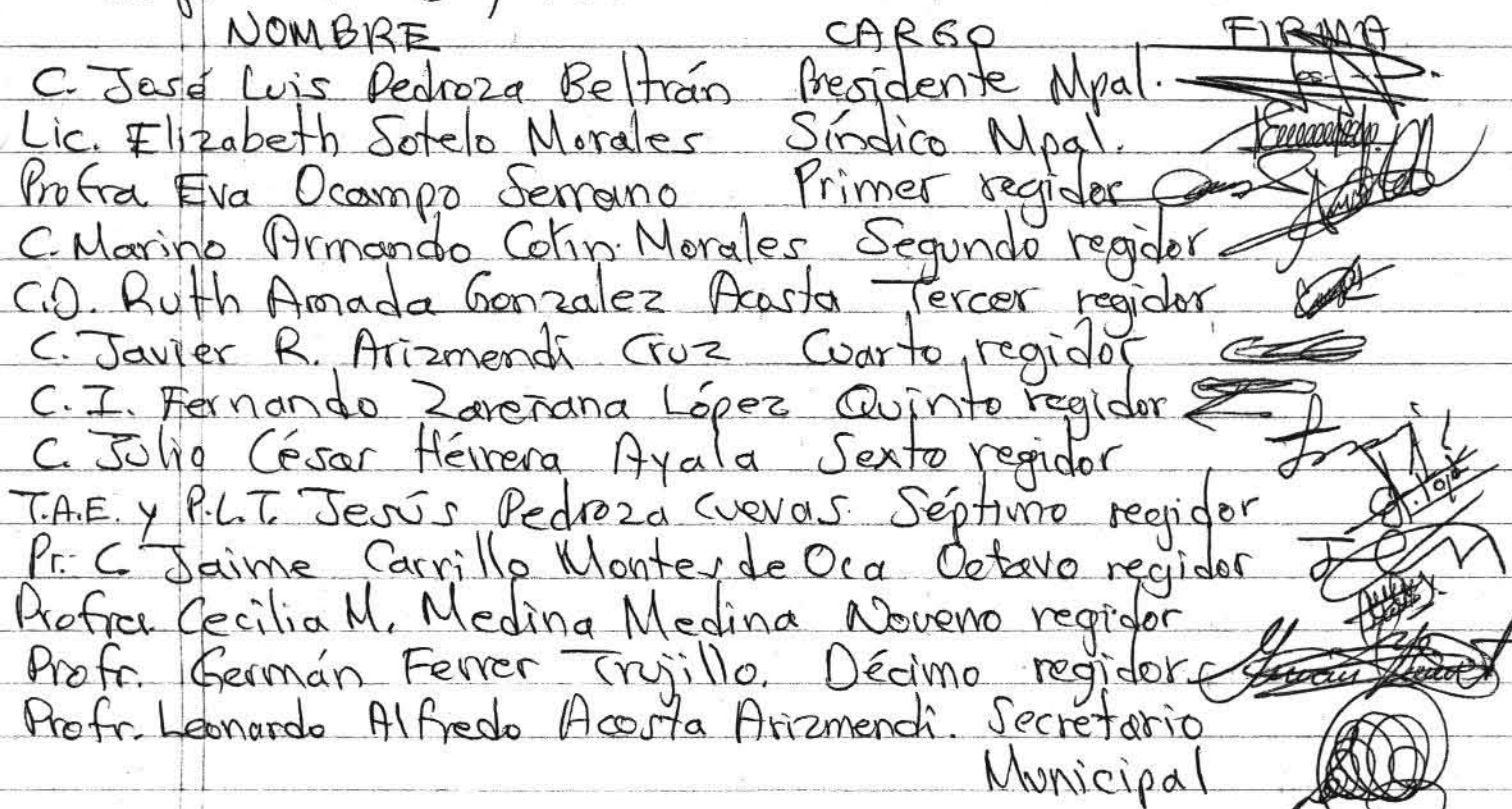 NOMBRE CARGO FIRMA
C. José Luis Pedroza Beltrán Presidente Mpal.
Lic. Elizabeth Sotelo Morales Síndico Mpal.
Profra Eva Ocampo Serrano Primer regidor
C. Marino Armando Colín Morales Segundo regidor
C.D. Ruth Amada Gonzalez Acosta Tercer regidor
C. Javier R. Arizmendi Cruz Cuarto regidor
C. I. Fernando López Quinto regidor
C. Julio César Hérrera Ayala Sexto regidor
T.A.E. y P.L.T. Jesús Pedroza Cuevas. Séptimo regidor
Pr. C Jaime Carrillo Montes de Oca Octavo regidor
Profra. Cecilia M. Medina Medina Noveno regidor
Profr. Germán Ferrer Trujillo. Décimo regidor
Profr. Leonardo Alfredo Acosta Arizmendi. Secretario
Municipal